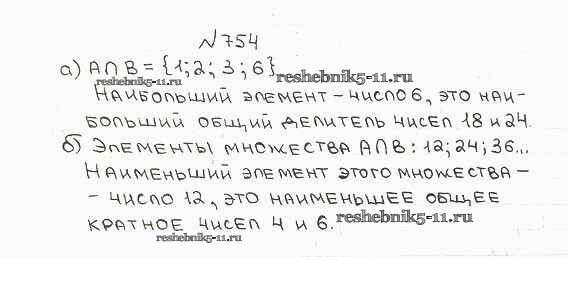 №754
а) А∩В = {1; 2; 3; 6} reshebnik5-11.ru
reshebnik5-11.ru
Наибольший элемент – число 6, это наи-
больший общий делитель чисел 18 и 24.
б) Элементы множества А∩В: 12; 24; 36...
Наименьший элемент этого множества –
– число 12, это наименьшее общее
кратное чисел 4 и 6. reshebnik5-11.ru
reshebnik5-11.ru